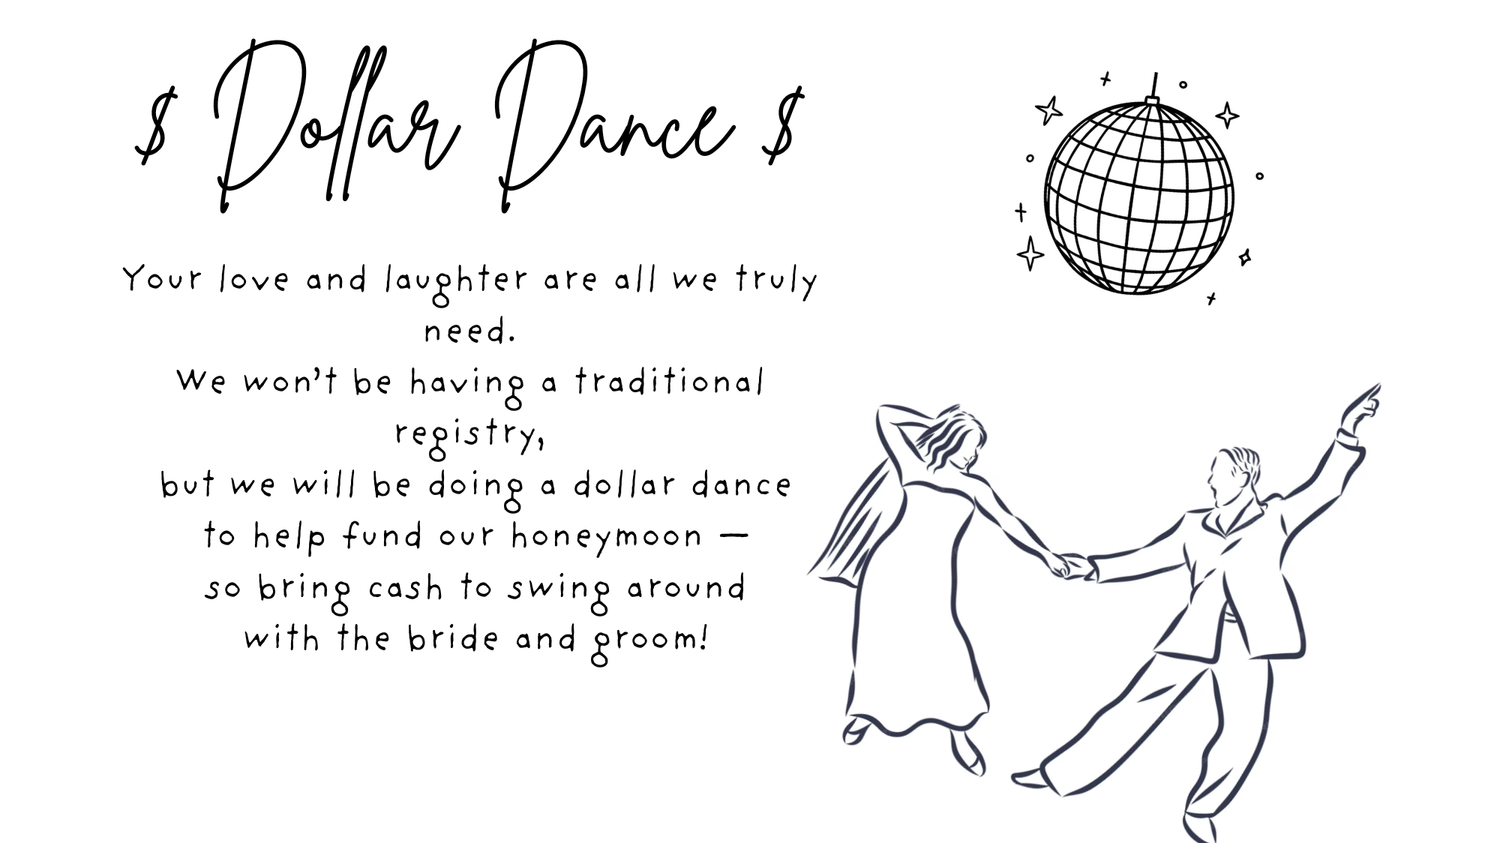 $ Dollar Dance $
Your love and laughter are all we truly
need.
We won't be having a traditional
registry,
but we will be doing a dollar dance
to help fund our honeymoon —
so bring cash to swing around
with the bride and groom!